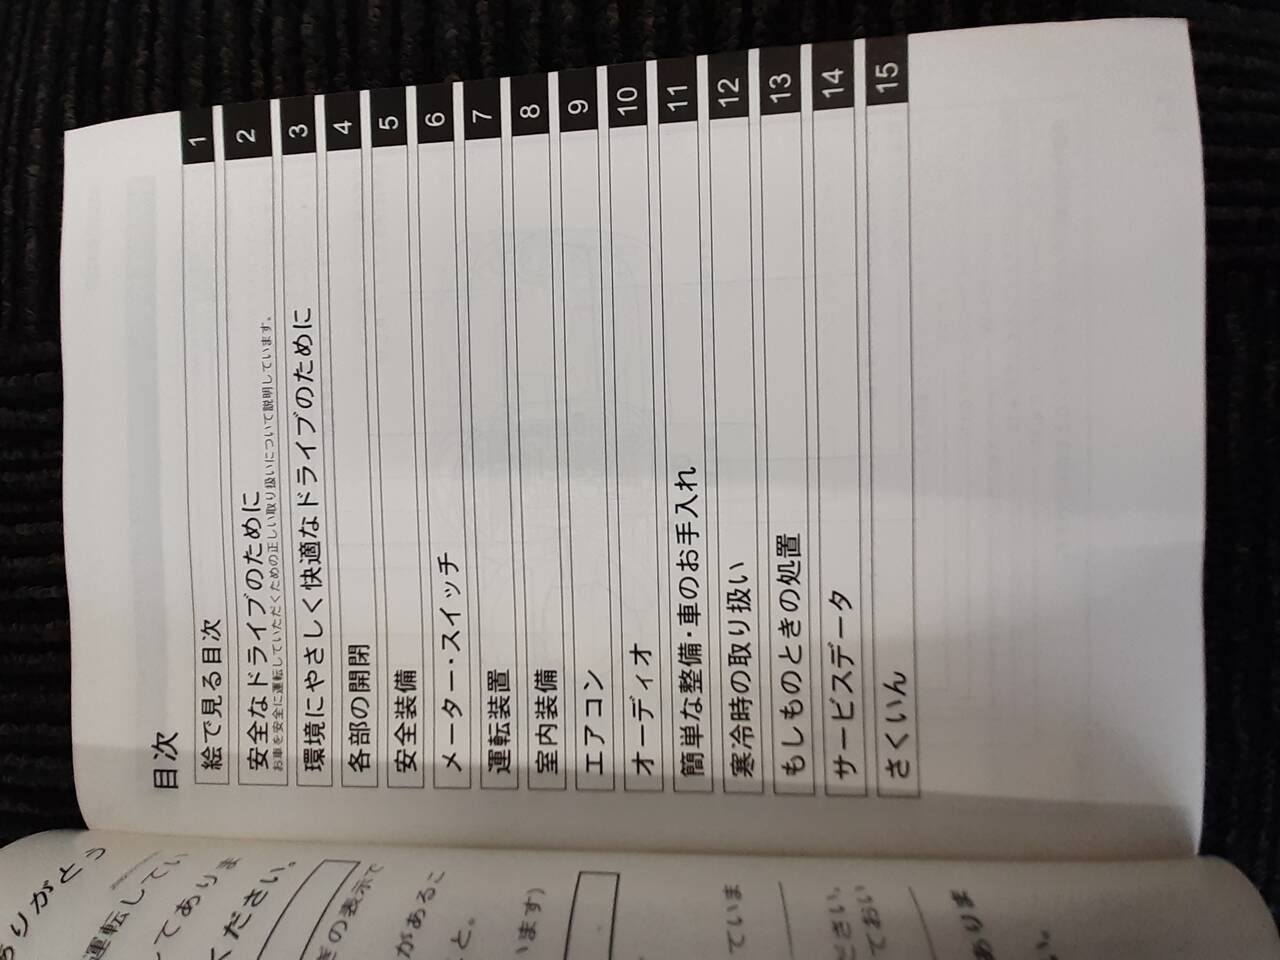 目次
絵で見る目次 1
安全なドライブのために 2
お車を安全に運転していただくための正しい取り扱いについて説明しています。
環境にやさしく快適なドライブのために 3
各部の開閉 4
安全装備 5
メーター・スイッチ 6
運転装置 7
室内装備 8
エアコン 9
オーディオ 10
簡単な整備・車のお手入れ 11
寒冷時の取り扱い 12
もしものときの処置 13
サービスデータ 14
さくいん 15
ありがとう
運転してい
てありま
ください。
きの表示で
があるこ
と。
います)
ていま
ださい。
ておい
ありま
い。